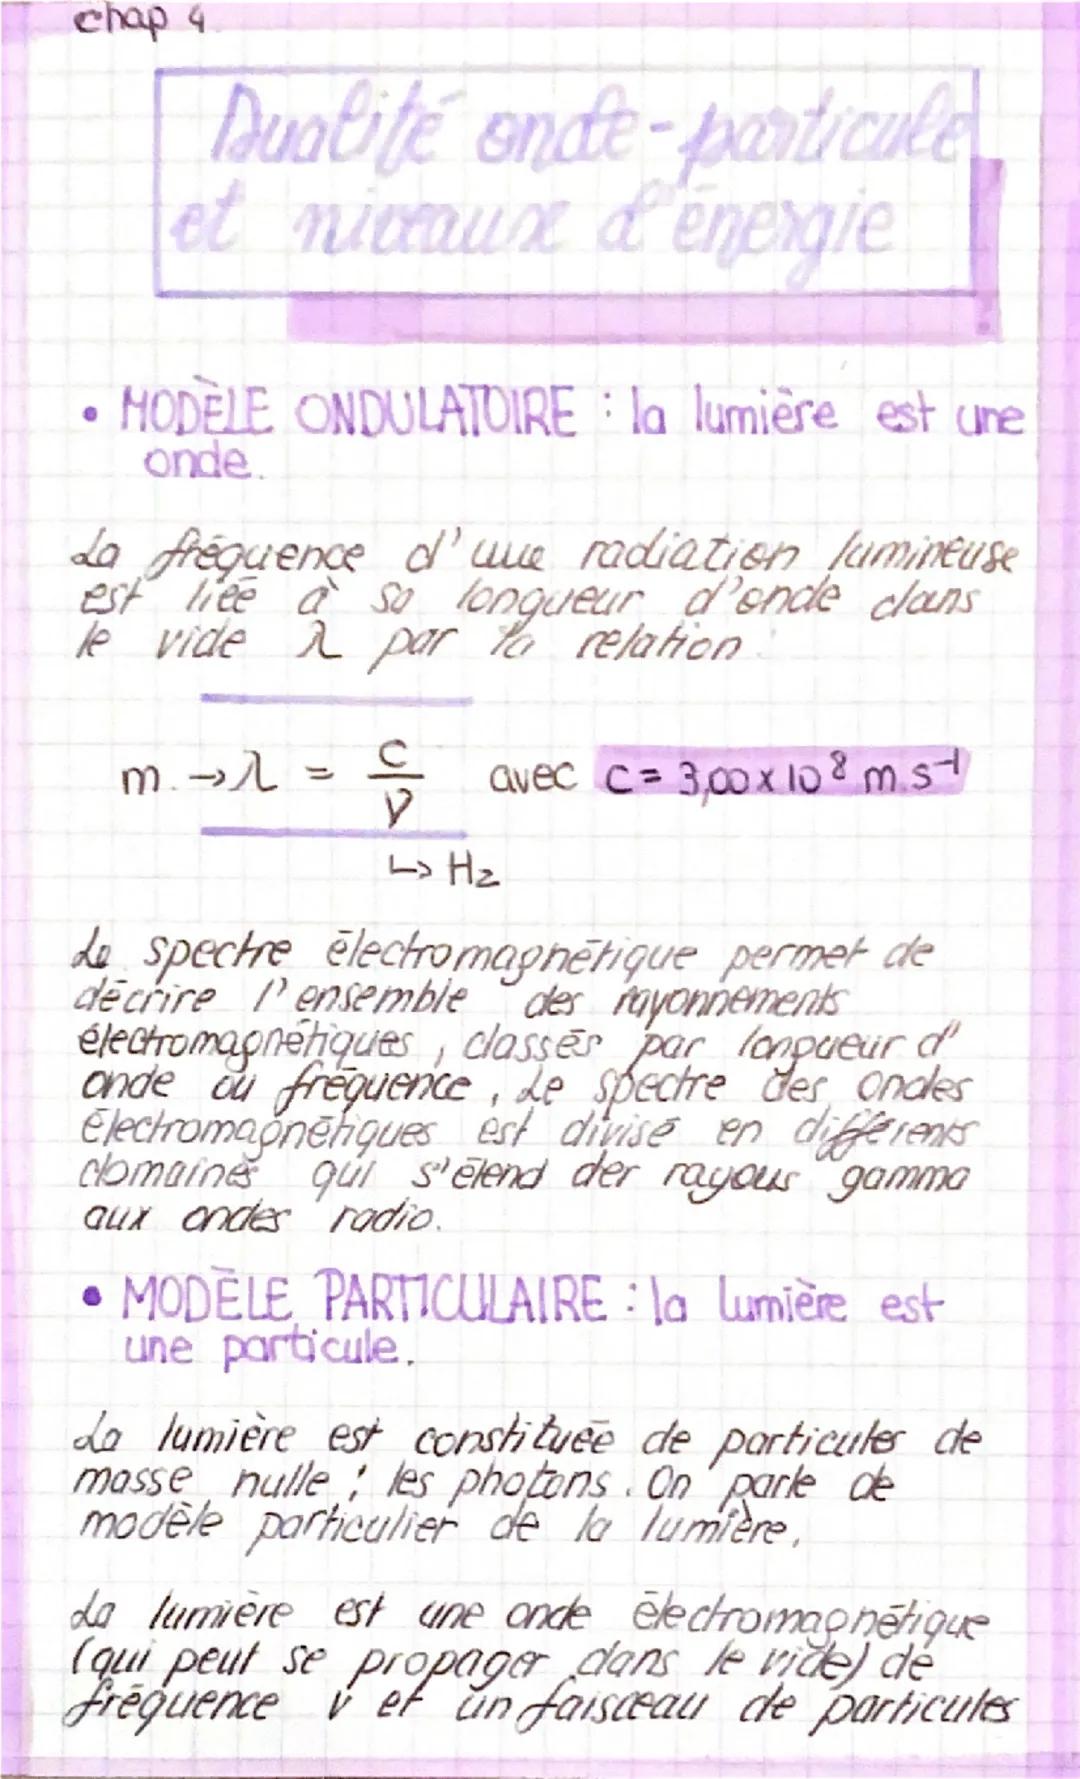 chap 4
Dualité onde-particule
et niveaux d'énergie
• MODÈLE ONDULATOIRE : la lumière est une
onde.
La fréquence d'une radiation lumineuse
est liée à sa longueur d'onde dans
le vide λ par la relation :
m. → λ = c/ν avec c = 3,00 x 10⁸ m.s⁻¹
↳ Hz
Le spectre électromagnétique permet de
décrire l'ensemble des rayonnements
électromagnétiques, classés par longueur d'
onde ou fréquence, Le spectre des ondes
électromagnétiques est divisé en différents
domaines qui s'étend der rayons gamma
aux ondes radio.
• MODÈLE PARTICULAIRE : la lumière est
une particule.
La lumière est constituée de particules de
masse nulle : les photons. On parle de
modèle particulier de la lumière.
La lumière est une onde électromagnétique
(qui peut se propager dans le vide) de
fréquence ν et un faisceau de particules